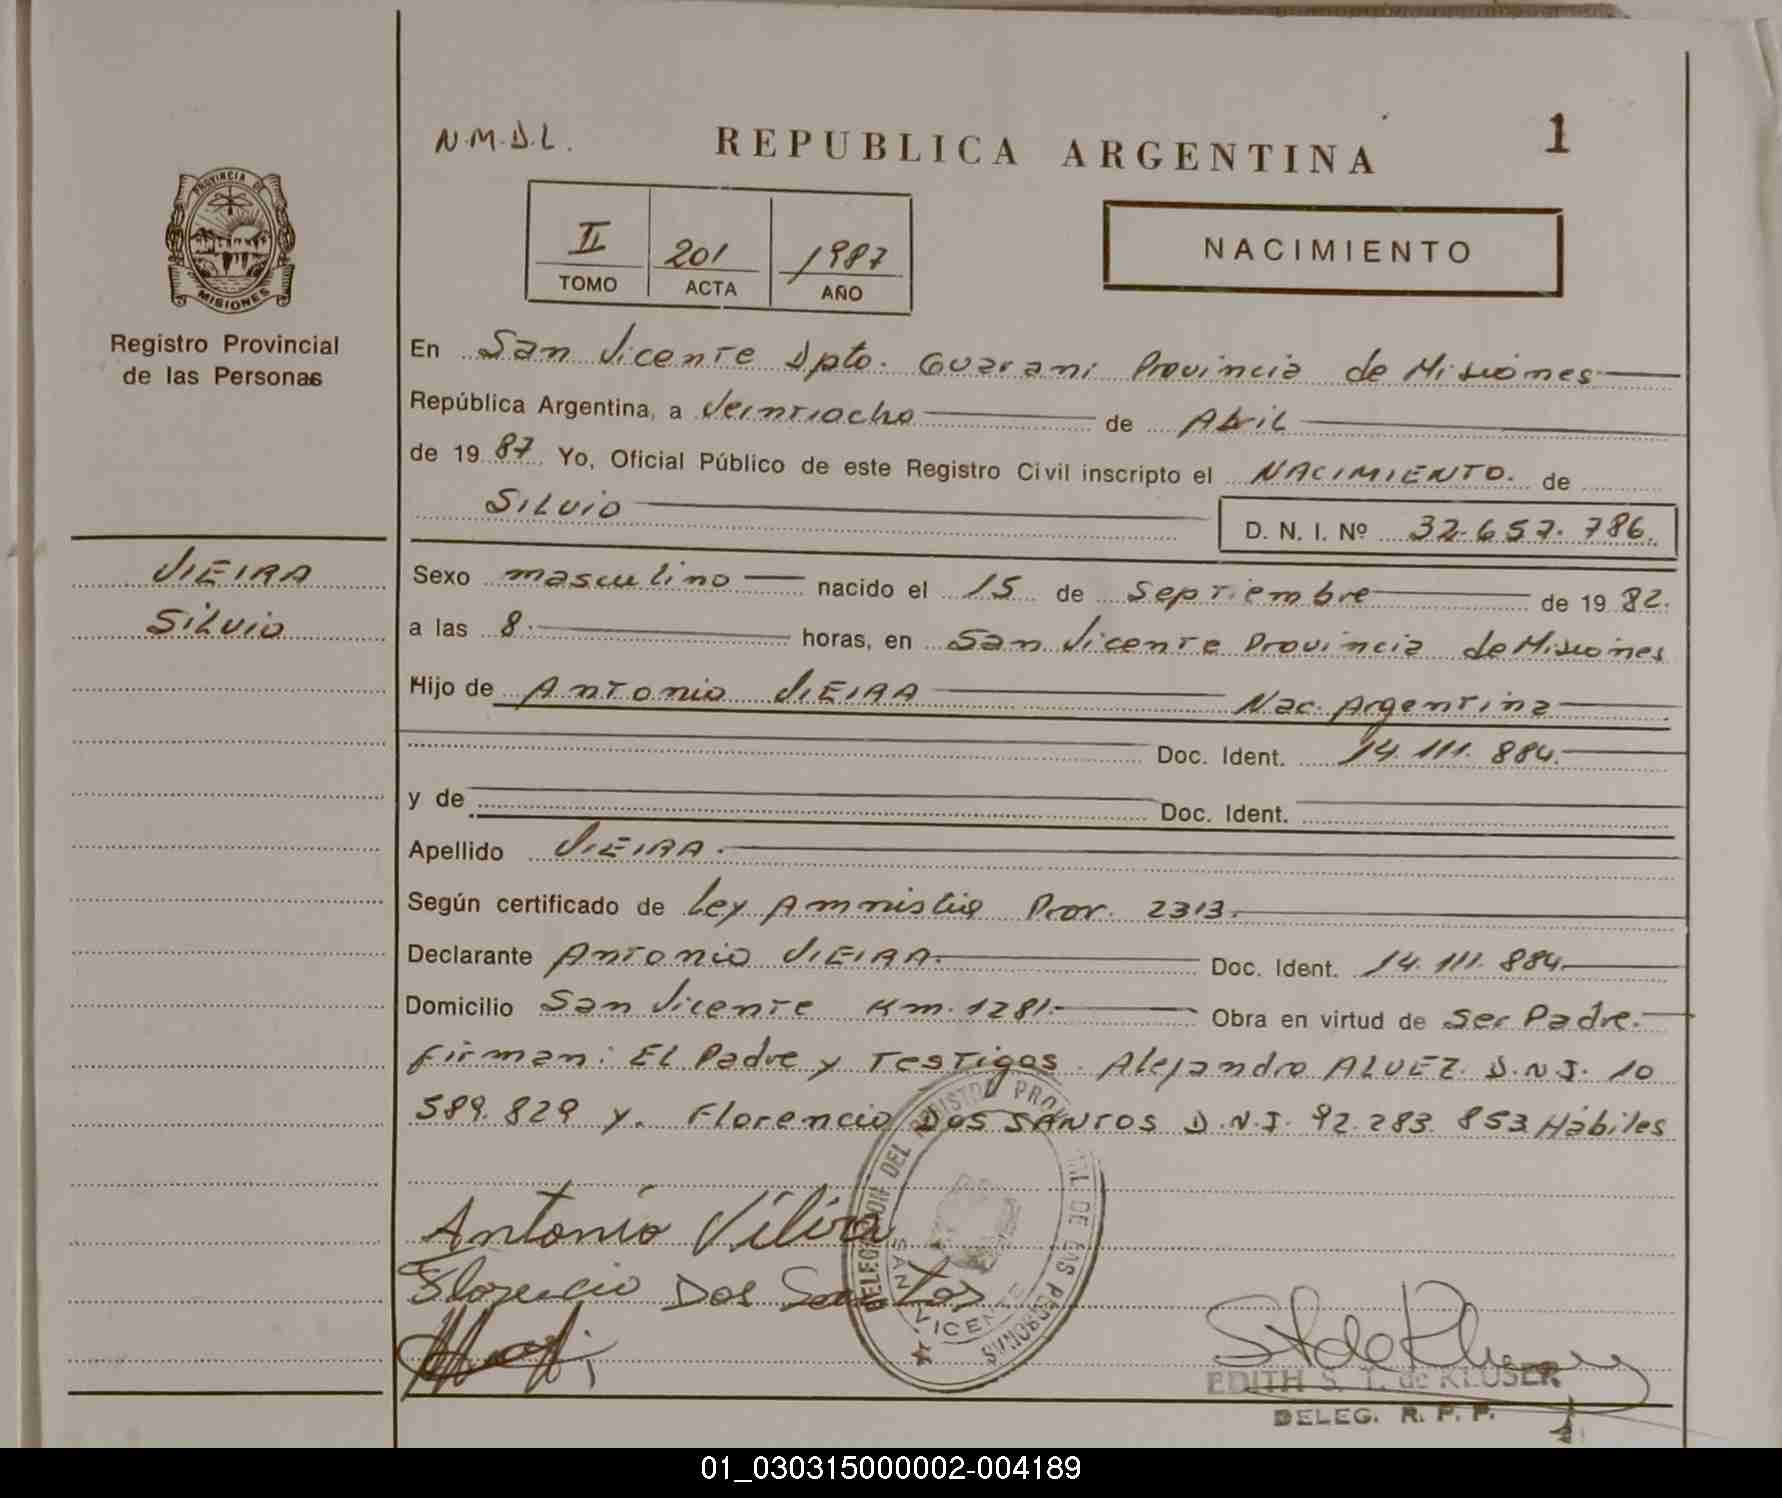 N.M.D.L.
REPUBLICA ARGENTINA
1
PROVINCIA DE
MISIONES
Registro Provincial
de las Personas
II 201 1987
TOMO ACTA AÑO
NACIMIENTO
En San Vicente Dpto. Guarani Provincia de Misiones
República Argentina, a Veintiocho de Abril
de 1987 Yo, Oficial Público de este Registro Civil inscripto el NACIMIENTO. de
Silvio D. N. I. Nº 32.657.786.
VIEIRA
Silvio
Sexo masculino nacido el 15 de Septiembre de 1982.
a las 8. horas, en San Vicente Provincia de Misiones
Hijo de Antonio VIEIRA Nac. Argentina
Doc. Ident. 14.111.884.
y de Doc. Ident.
Apellido VIEIRA.
Según certificado de Ley Amnistia Prov. 2313.
Declarante Antonio VIEIRA. Doc. Ident. 14.111.884.
Domicilio San Vicente Km. 1281. Obra en virtud de Ser Padre.
firman: El Padre y Testigos. Alejandro ALVEZ. D.N.I. 10
589.829 y. Florencio DOS SANTOS D.N.I. 92.283.853 Hábiles
Antonio Vieira
Florencio Dos Santos
DELEGACION DEL REGISTRO PROVINCIAL DE LAS PERSONAS
SAN VICENTE
EDITH S. T. de KLUSER
DELEG. R. P. P.
01_030315000002-004189